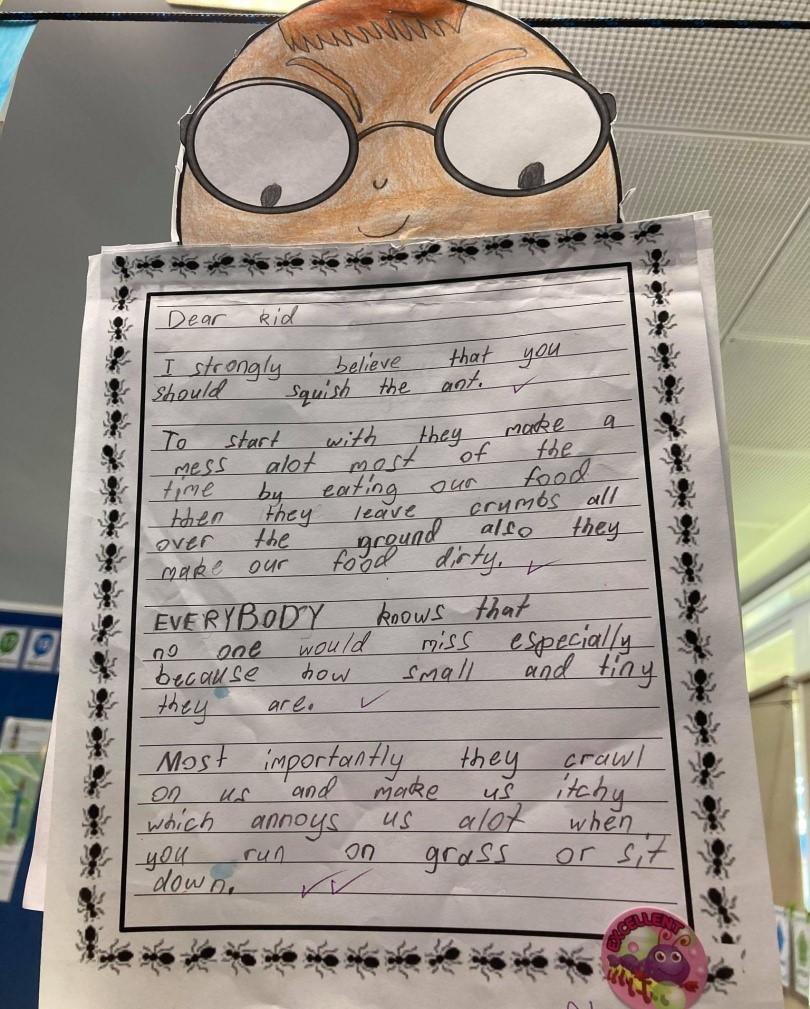 Dear kid
I strongly believe that you
should squish the ant.
To start with they make a
mess alot most of the
time by eating our food
then they leave crumbs all
over the ground also they
make our food dirty.
EVERYBODY knows that
no one would miss especially
because how small and tiny
they are.
Most importantly they crawl
on us and make us itchy
which annoys us alot when
you run on grass or sit
down.
EXCELLENT